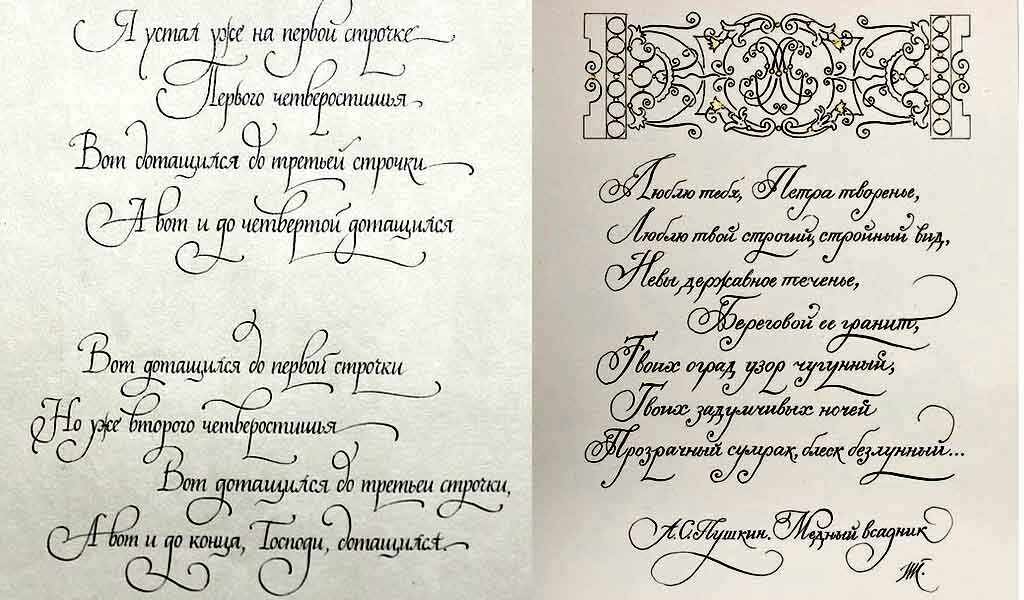 Я устал уже на первой строчке
Первого четверостишья
Вот дотащился до третьей строчки
А вот и до четвертой дотащился
Вот дотащился до первой строчки
Но уже второго четверостишья
Вот дотащился до третьеи строчки,
А вот и до конца, Господи, дотащился.
Люблю тебя, Петра творенье,
Люблю твой строгий, стройный вид,
Невы державное теченье,
Береговой ее гранит,
Твоих оград узор чугунный,
Твоих задумчивых ночей
Прозрачный сумрак, блеск безлунный...
А.С.Пушкин. Медный всадник